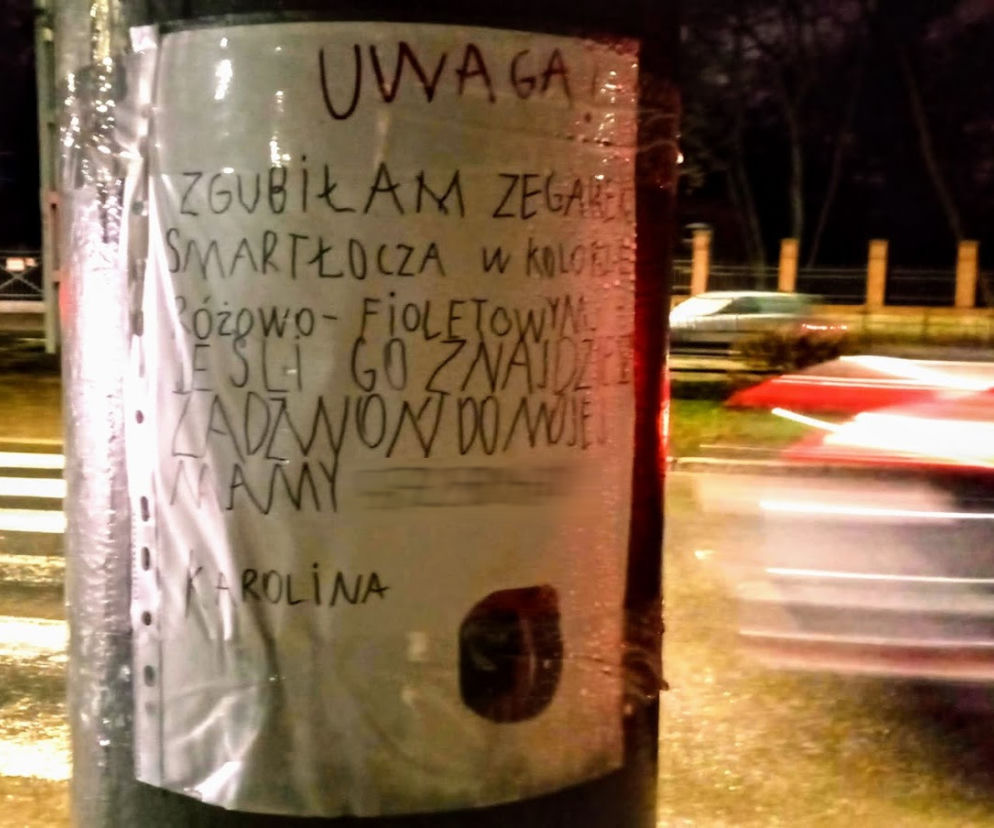 UWAGA!
ZGUBIŁAM ZEGAREC
SMARTŁOCZA W KOLORZE
RÓŻOWO-FIOLETOWYM
JEŚLI GO ZNAJDZIE
ZADZWOŃ DO MOJEJ
MAMY
KAROLINA